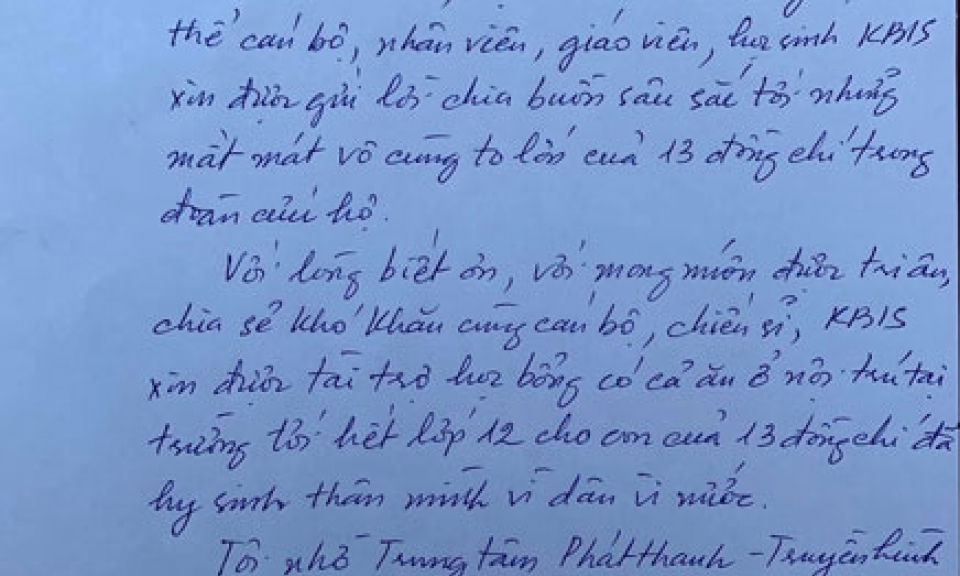 thể cán bộ, nhân viên, giáo viên, học sinh KBIS
xin được gửi lời chia buồn sâu sắc tới những
mất mát vô cùng to lớn của 13 đồng chí trong
đoàn cứu hộ.
Với lòng biết ơn, với mong muốn được tri ân,
chia sẻ khó khăn cùng cán bộ, chiến sĩ, KBIS
xin được tài trợ học bổng có cả ăn ở nội trú tại
trường tới hết lớp 12 cho con của 13 đồng chí đã
hy sinh thân mình vì dân vì nước.
Tôi nhờ Trung tâm Phát thanh - Truyền hình